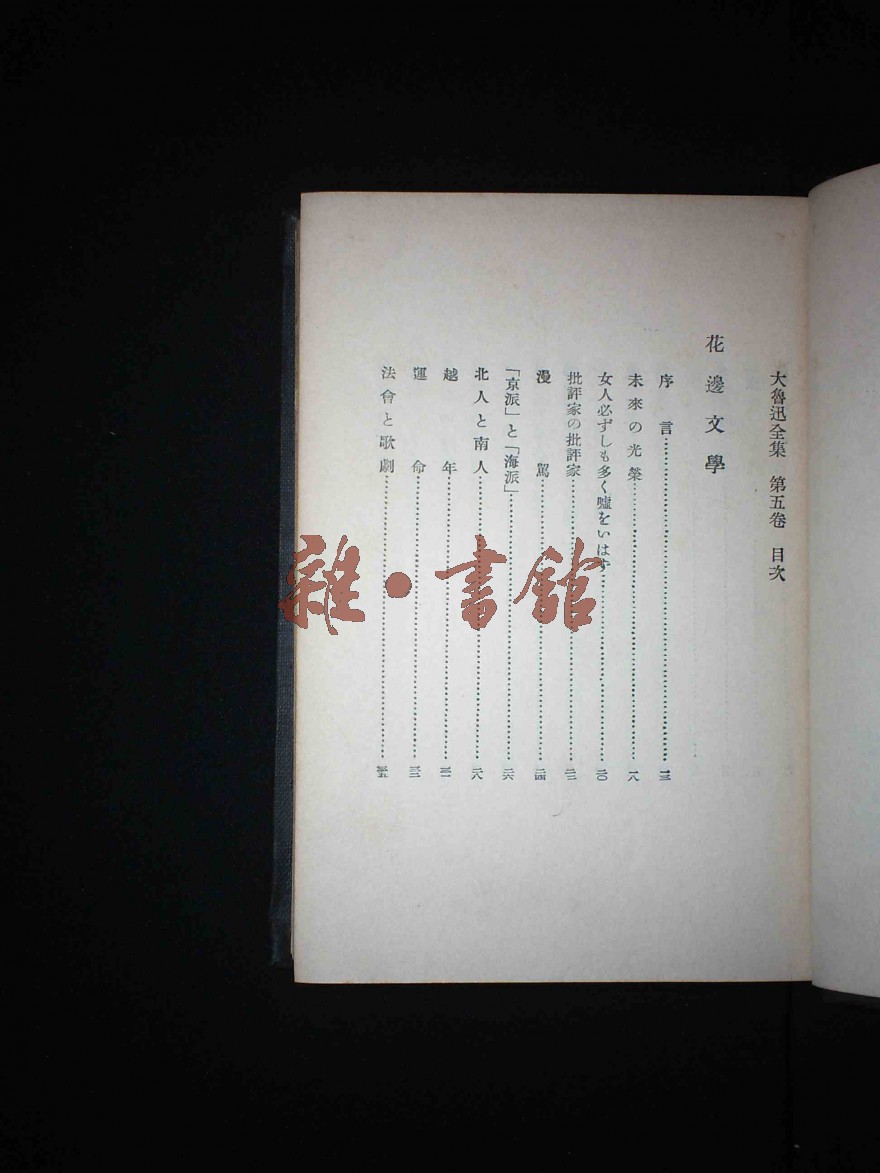 大魯迅全集 第五卷 目次
花邊文學
序言……一三
未來の光榮……一八
女人必ずしも多く嘘をいはず……二〇
批評家の批評家……二二
漫罵……二四
「京派」と「海派」……二六
北人と南人……二八
越年……三一
運命……三二
法會と歌劇……三五
雜·書舘